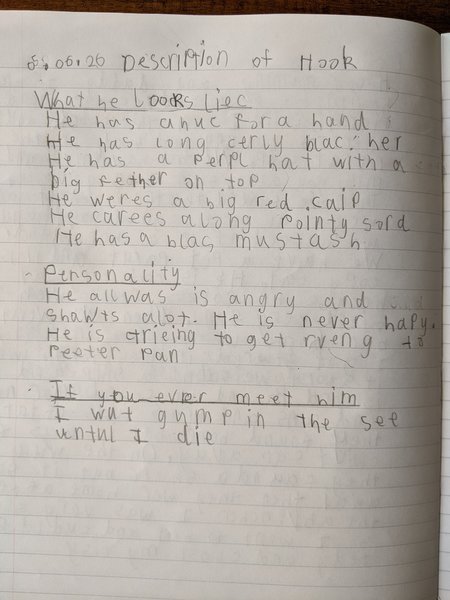 8.06.20 Description of Hook
What he loocks liec
He has a huc for a hand
He has long cerly blac her
He has a perpl hat with a
big fether on top
He weres a big red caip
He carees along pointy sord
He has a blac mustash
Personality
He allwas is angry and
shawts alot. He is never hapy.
He is trieing to get rveng to
Peeter Pan
If you ever meet him
I wut gump in the see
untul I die